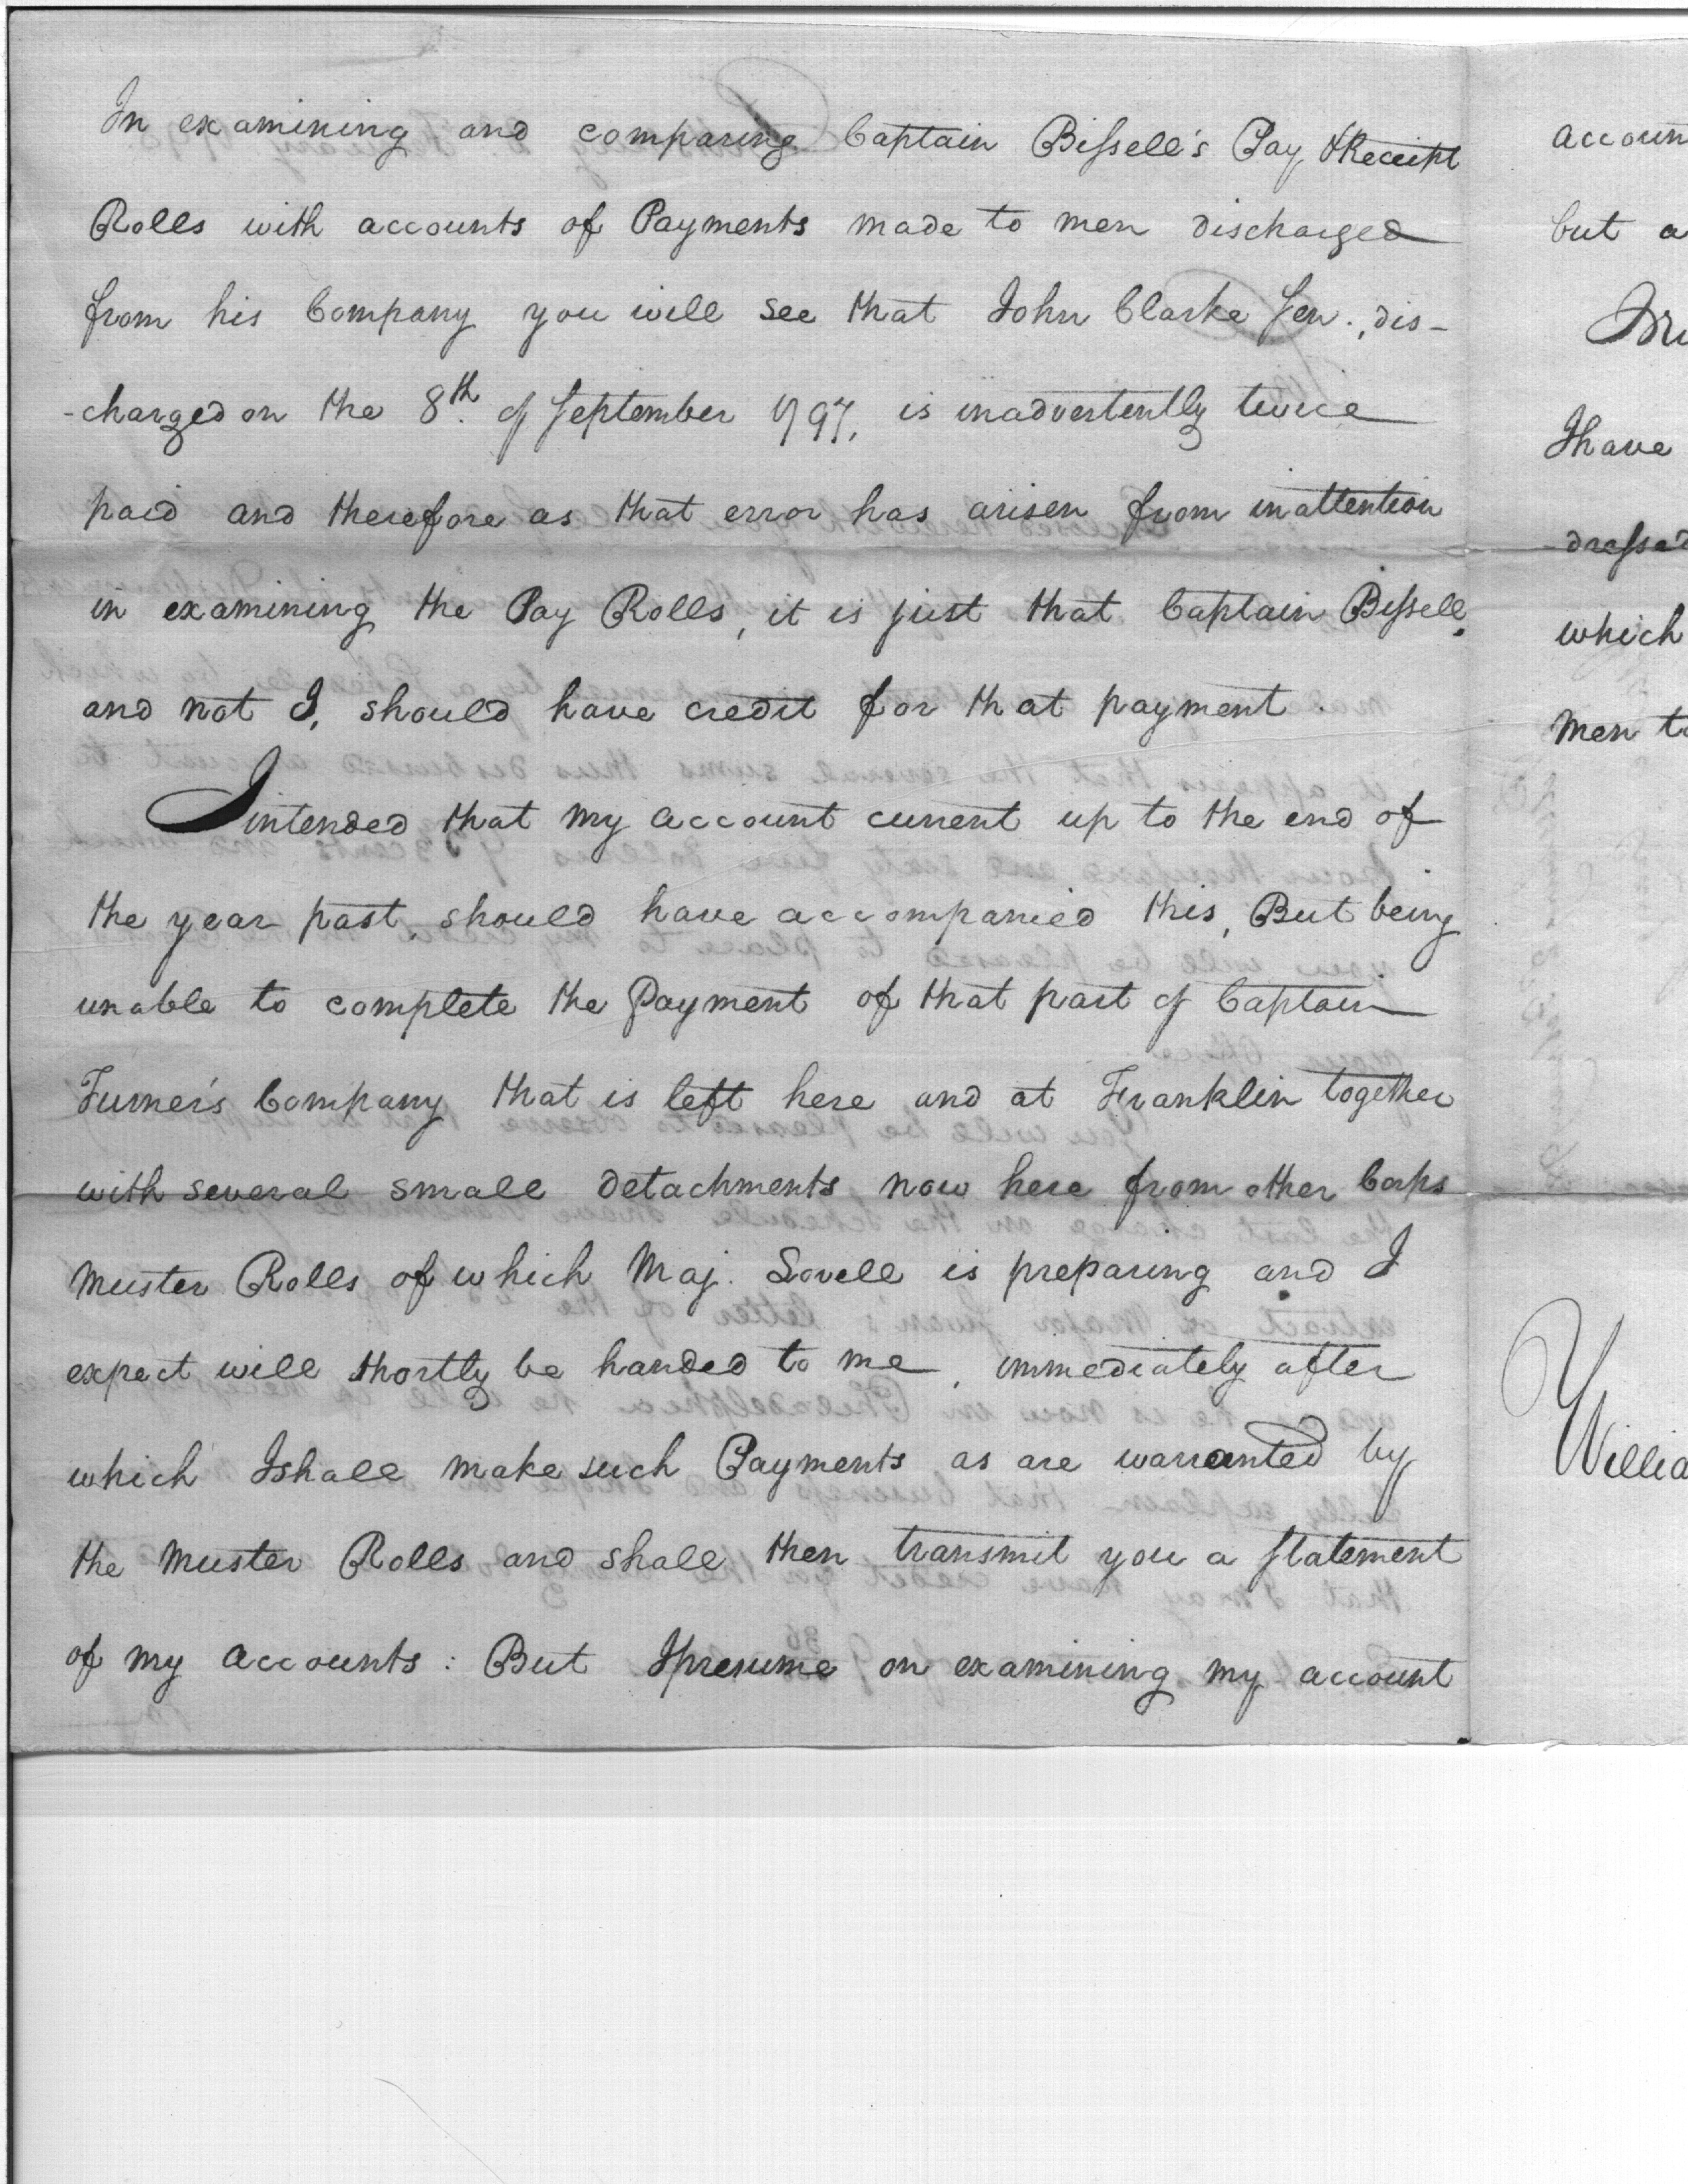 In examining and comparing Captain Bissell's Pay & Receipt
Rolls with accounts of Payments made to men discharged
from his Company you will see that John Clarke Sen., dis-
-charged on the 8th. of September 1797, is inadvertently twice
paid and therefore as that error has arisen from inattention
in examining the Pay Rolls, it is just that Captain Bissell,
and not I, should have credit for that payment.
I intended that my account current up to the end of
the year past, should have accompanied this, But being
unable to complete the Payment of that part of Captain
Turner's Company that is left here and at Franklin together
with several small detachments now here from other Corps
Muster Rolls of which Maj. Lovell is preparing and I
expect will shortly be handed to me, immediately after
which I shall make such Payments as are warranted by
the Muster Rolls and shall then transmit you a Statement
of my accounts: But I presume on examining my account
accoun
but a
I have
dressed
which
Men to
Willia